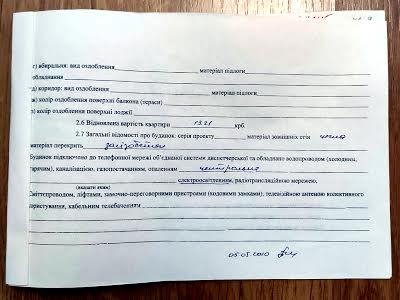 г) вбиральня: вид оздоблення матеріал підлоги
обладнання
д) коридор: вид оздоблення матеріал підлоги
ж) колір оздоблення поверхні балкона (тераси)
з) колір оздоблення поверхні лоджії
2.6 Відновлена вартість квартири 1321 крб.
2.7 Загальні відомості про будинок: серія проекту матеріал зовнішніх стін цегла
матеріал перекрить залізобетон
Будинок підключено до телефонної мережі об'єднаної системи диспетчерської та обладнано водопроводом (холодним,
гарячим), каналізацією, газопостачанням, опаленням центральне
(вказати яким) електроосвітленням, радіотрансляційною мережею,
сміттєпроводом, ліфтами, замочно-переговорними пристроями (кодовими замками), телевізійною антеною колективного
користування, кабельним телебаченням
05.05.2010